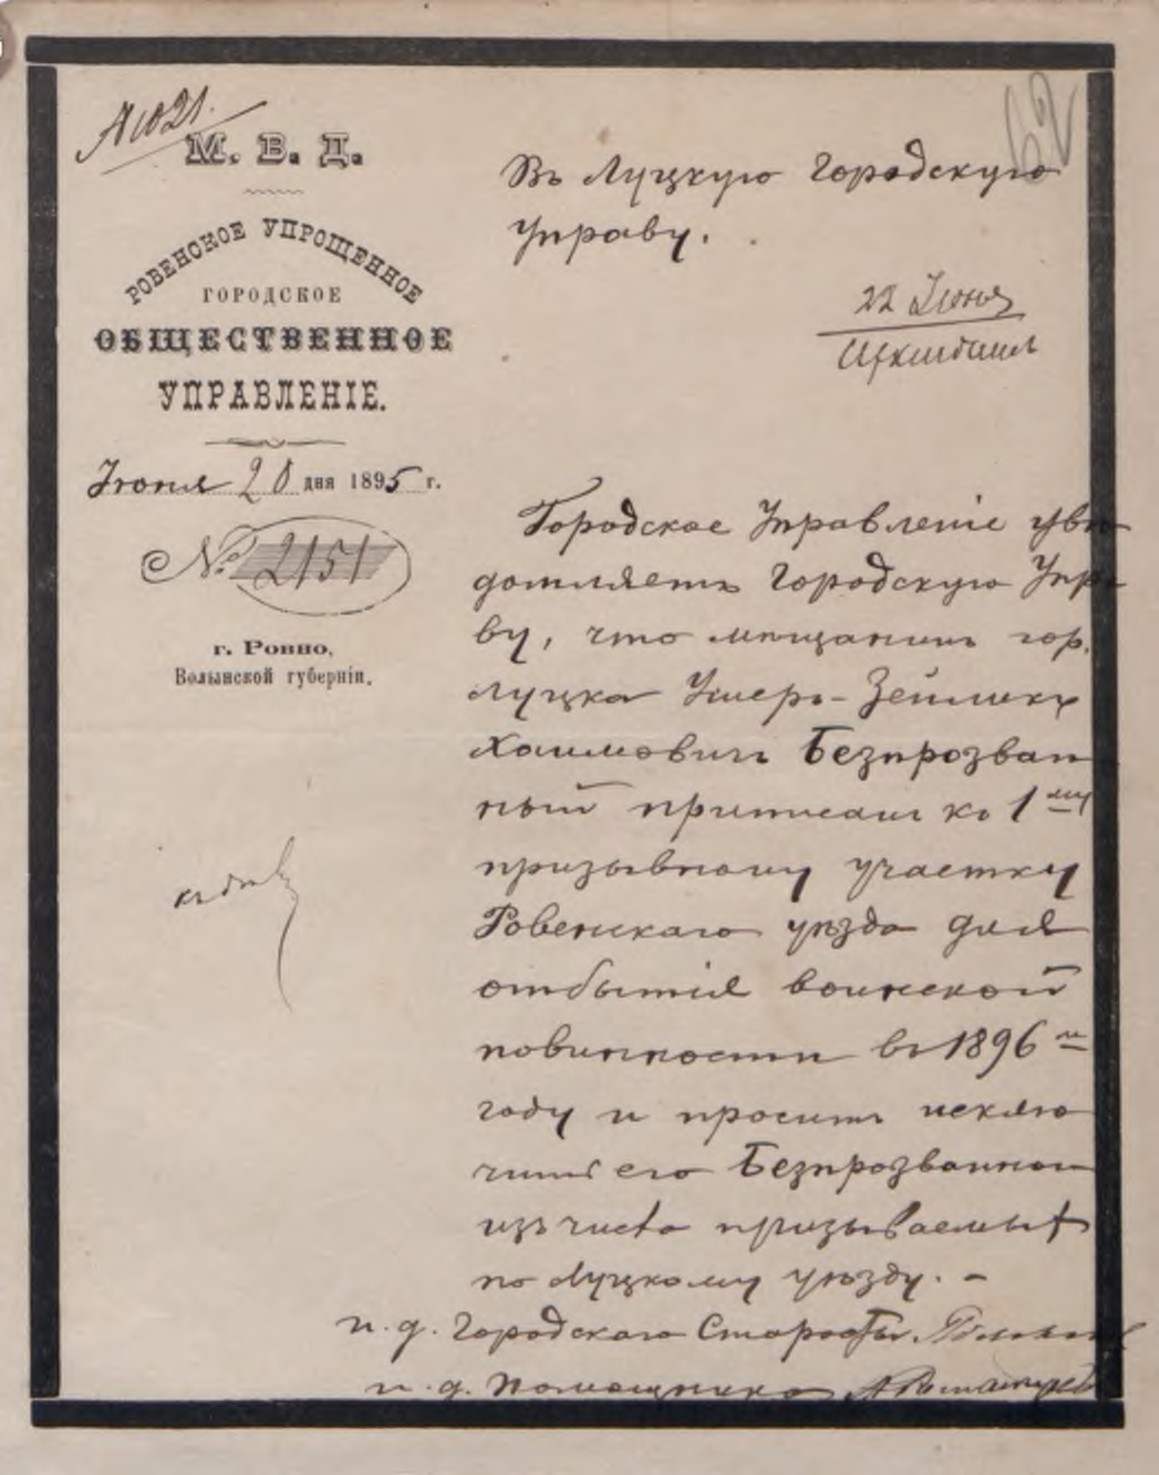 62
№1021.
М. В. Д.
РОВЕНСКОЕ УПРОЩЕННОЕ
ГОРОДСКОЕ
ОБЩЕСТВЕННОЕ
УПРАВЛЕНІЕ.
Іюня 20 дня 1895 г.
№ 2151
г. Ровно,
Волынской губерніи.
Въ Луцкую Городскую
Управу.
22 Іюня
Городское Управленіе увѣ
домляетъ Городскую Упра
ву, что мѣщанинъ гор.
Луцка Умеръ-Зейликъ
Хаимовичъ Безпрозван
ный приписанъ къ 1му
призывному участку
Ровенскаго уѣзда для
отбытія воинской
повинности въ 1896 м
году и проситъ исклю
чить его Безпрозваннаго
изъ числа призываемых
по Луцкому уѣзду. –
и. д. Городскаго Старосты
и. д. Помощника